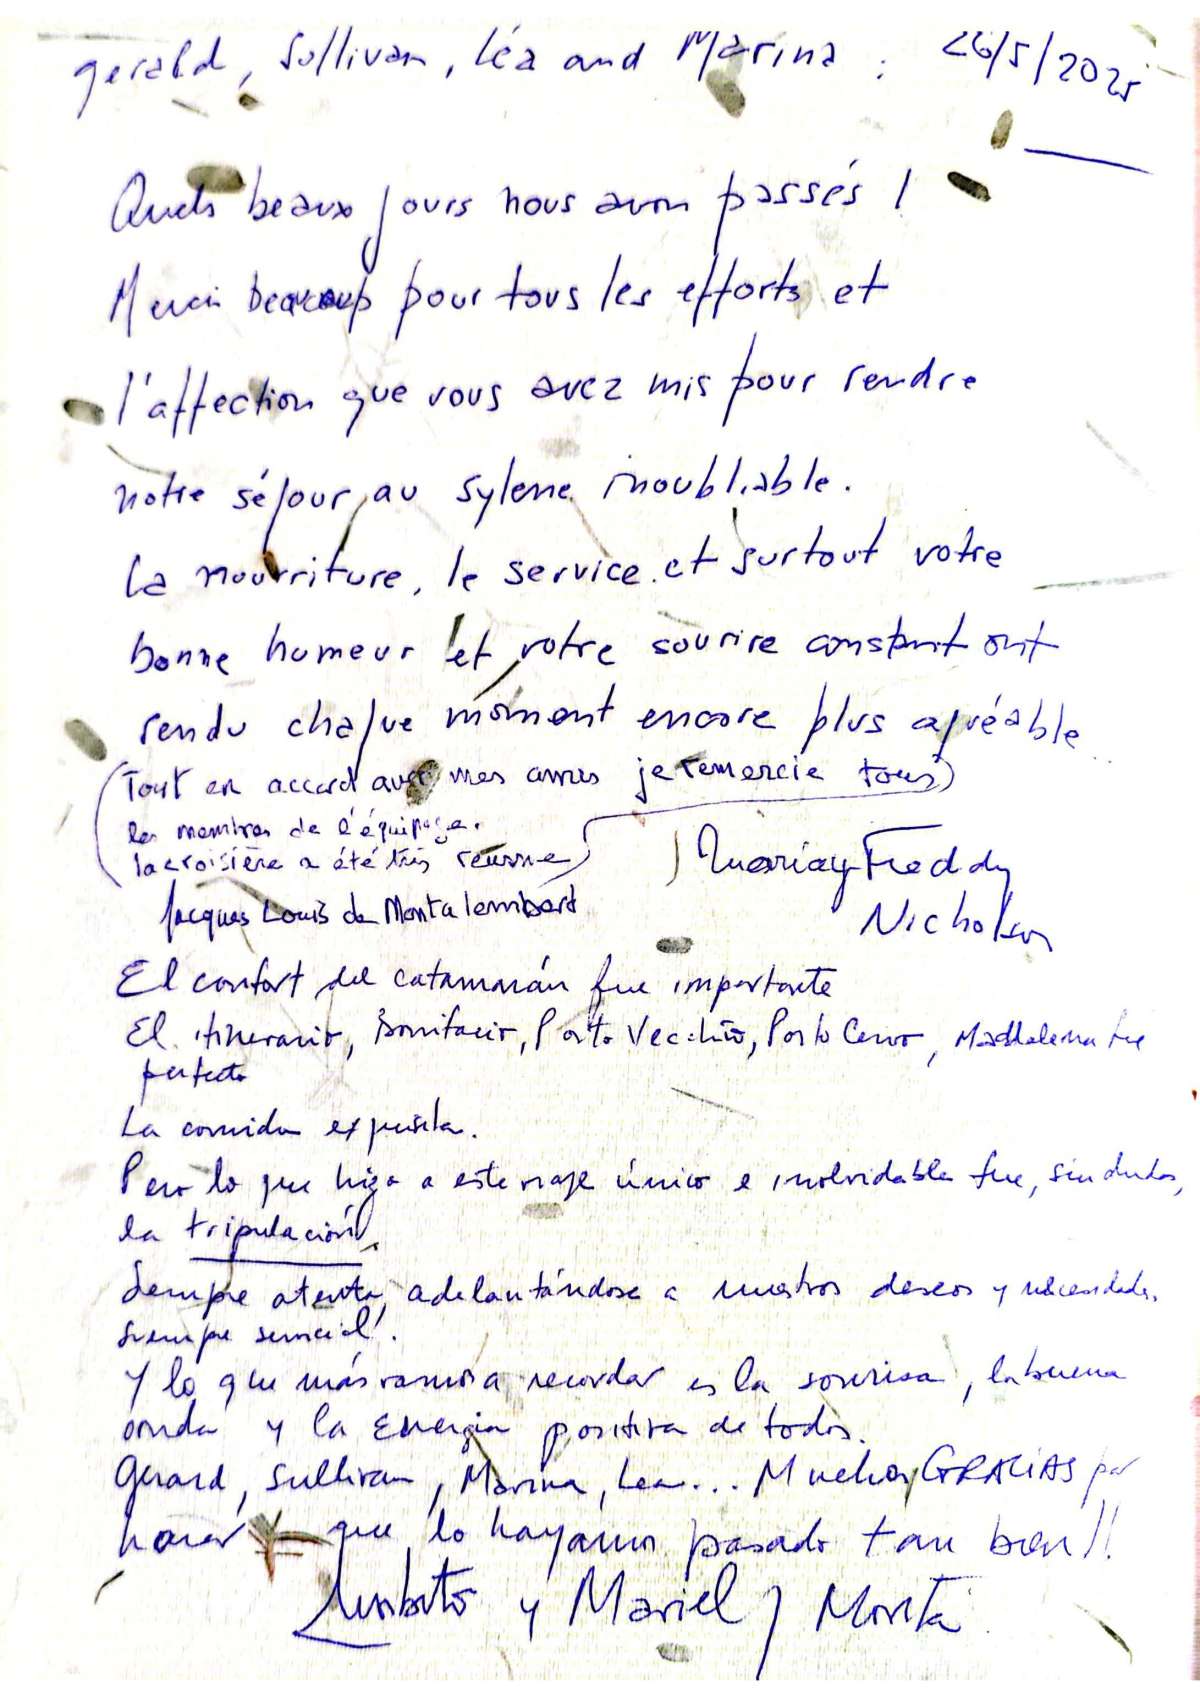 Gerald, Sullivan, Léa and Marina : 26/5/2025
Quels beaux jours nous avon passés !
Merci beaucoup pour tous les efforts et
l'affection que vous avez mis pour rendre
notre séjour au Sylene inoubliable.
La nourriture, le service et surtout votre
bonne humeur et votre sourire constant ont
rendu chaque moment encore plus agréable
(Tout en accord avec mes amis je remercie tous)
les membres de l'équipage.
la croisière a été très réussie)
Maria y Freddy
Jacques Louis de Montalembert
Nicholson
El confort del catamarán fue importante
El itinerario, Bonifacio, Porto Vecchio, Porto Cervo, Maddalena fue
perfecto
La comida exquisita.
Pero lo que hizo a este viaje único e inolvidable fue, sin dudas,
la tripulación.
Siempre atenta, adelantándose a nuestros deseos y necesidades.
Siempre servicial!.
Y lo que más vamos a recordar es la sonrisa, la buena
onda y la energia positiva de todos.
Gerard, Sullivan, Marina, Lea... Muchas GRACIAS por
hacer que lo hayamos pasado tan bien!!
y Mariel